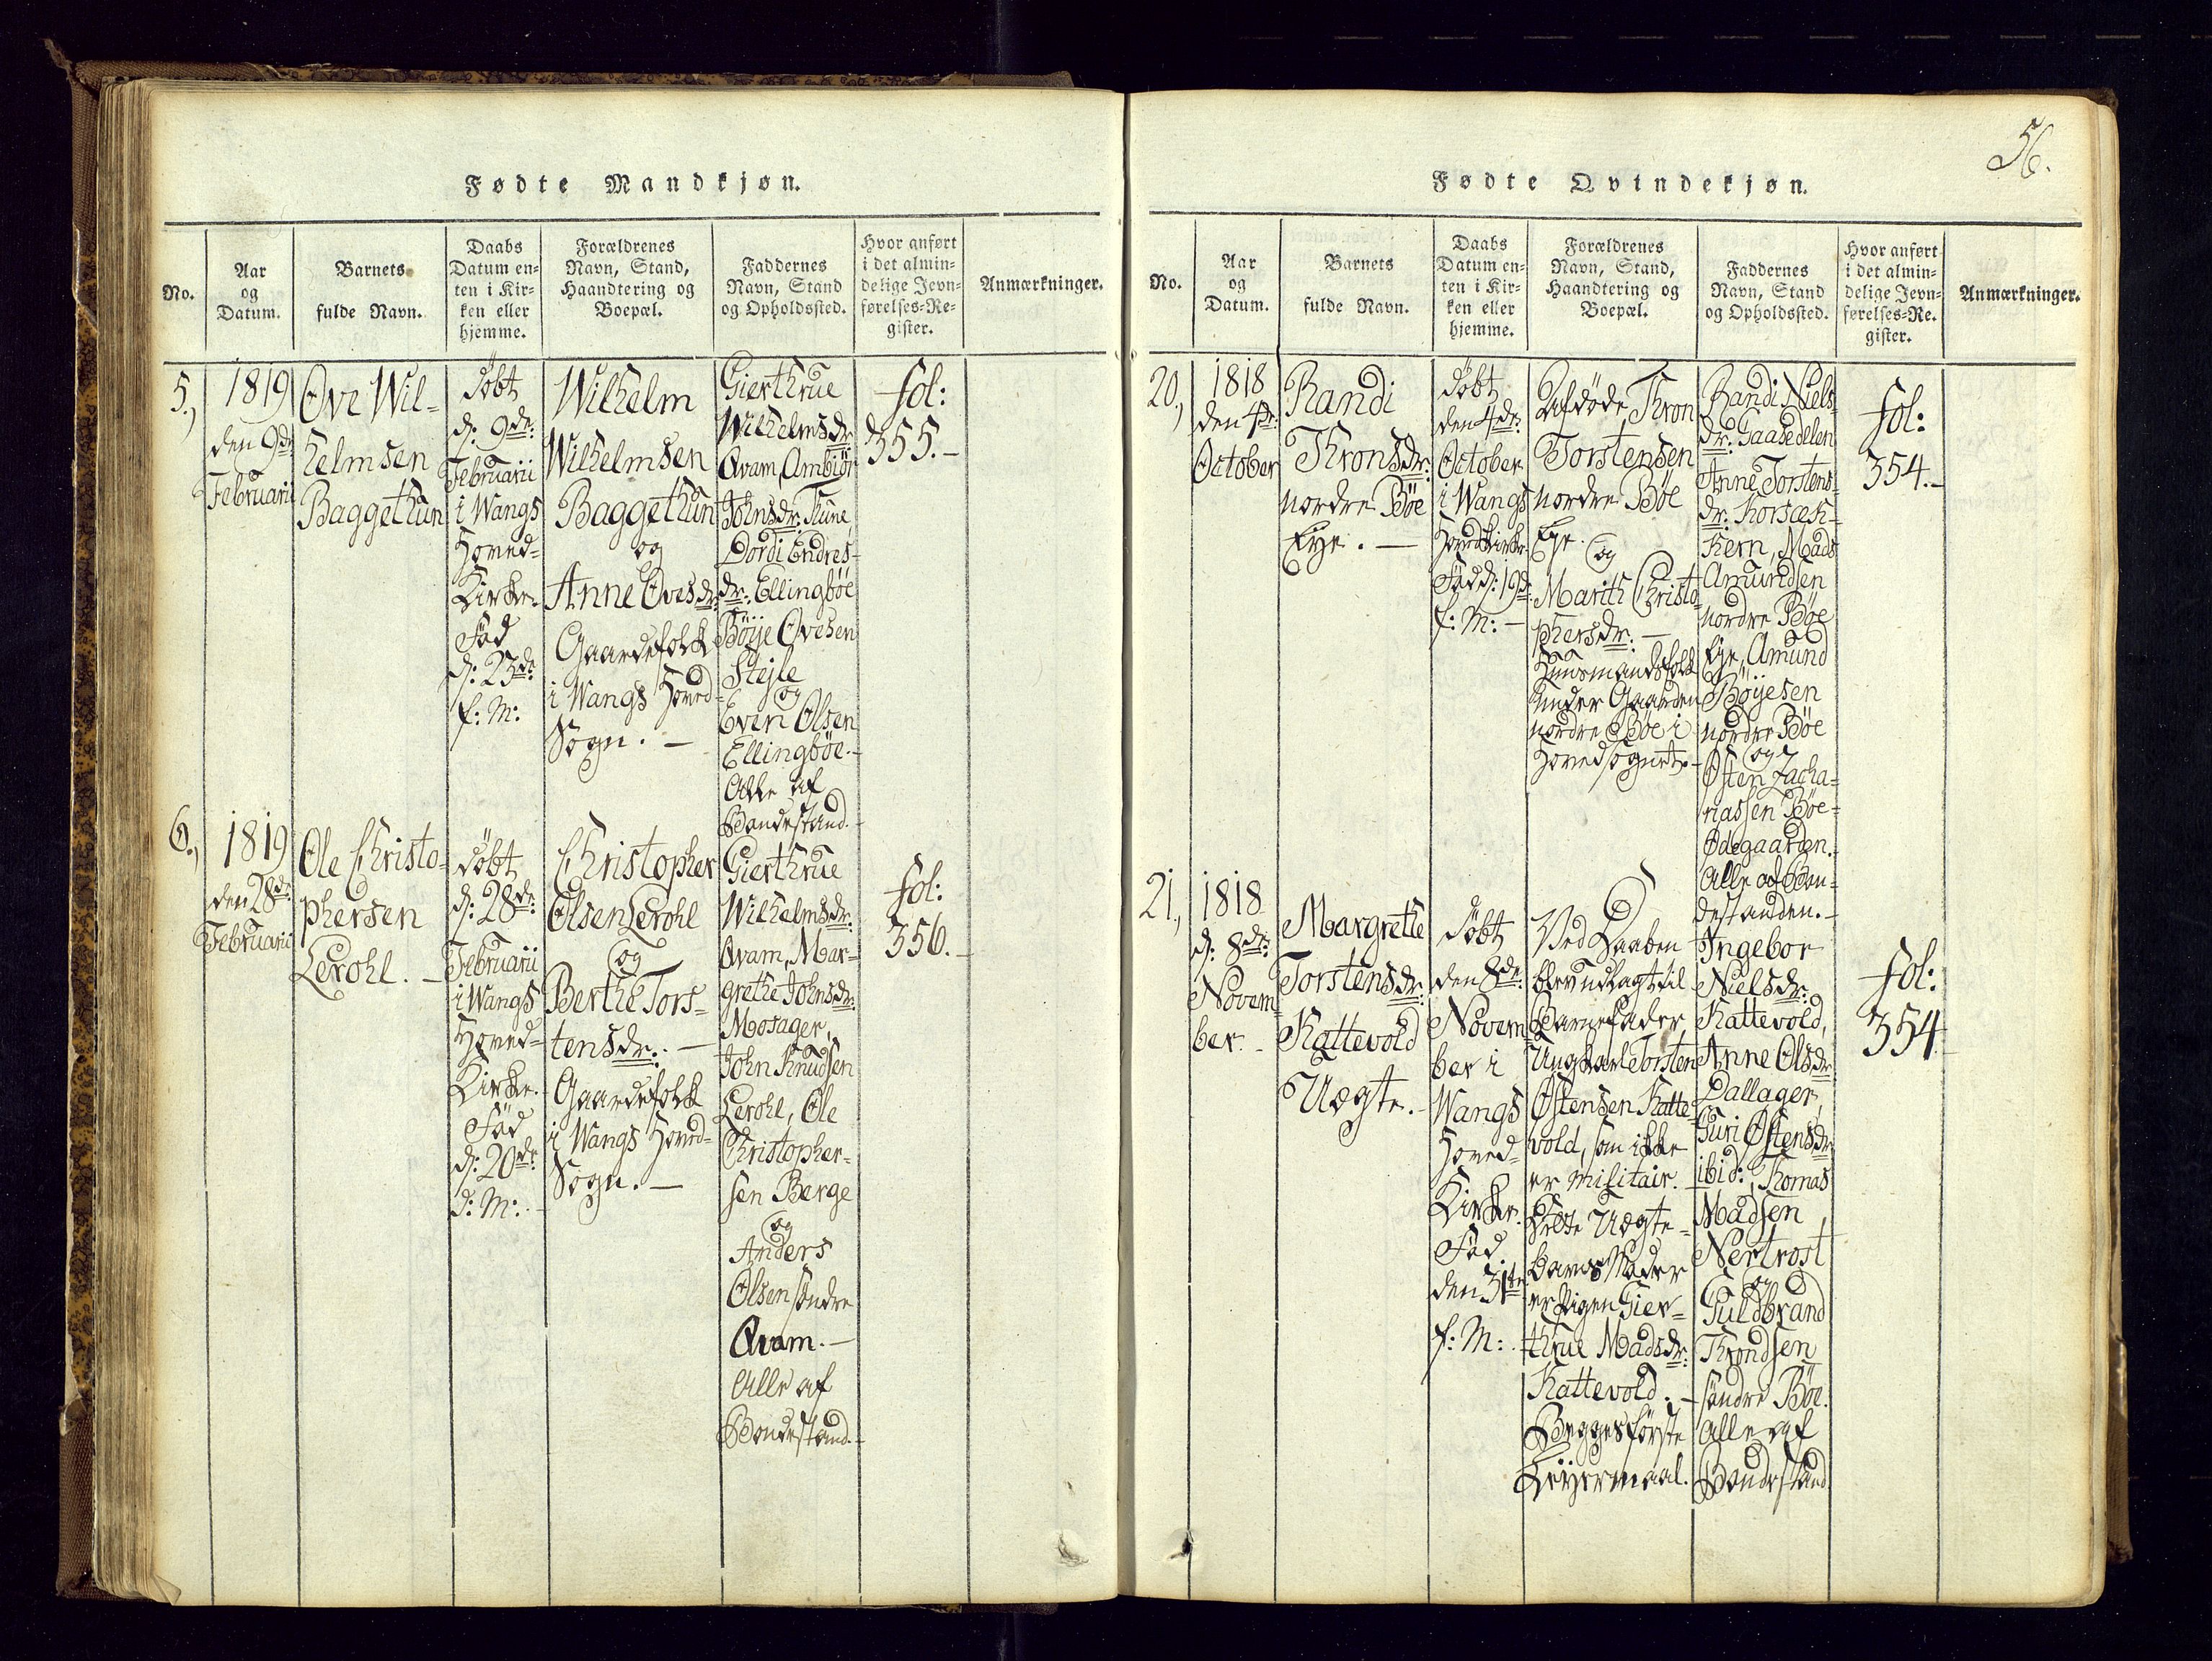 56.
Fødte Mandkjøn.
No.
Aar
og
Datum.
Barnets
fulde Navn.
Daabs
Datum en-
ten i Kir-
ken eller
hjemme.
Forældrenes
Navn, Stand,
Haandtering og
Boepæl.
Faddernes
Navn, Stand
og Opholdssted.
Hvor anført
i det almin-
delige Jevn-
førelses-Re-
gister.
Anmærkninger.
5.,
1819
den 9de
Februarii
Ove Wil-
helmsen
Baggethun
Döbt
d: 9de:
Februarii
i Wangs
Hoved-
Kirke.
Föd
d: 23de:
f: M:
Wilhelm
Wilhelmsen
Baggethun
og
Anne Ovesdr:
Gaardefolk
i Wangs Hoved-
Sogn. —
Gierthrue
Wilhelmsdr:
Qvam, Ambiör
Johnsdr: Thune,
Dordi Endres-
dr: Ellingböe
Böije Ovesen
Stejle
og
Even Olsen
Ellingböe.
Alle af
Bondestand.
fol:
355. —
6.,
1819
den 28de
Februarii
Ole Christo-
phersen
Lerohl. —
Döbt
d: 28de:
Februarii
i Wangs
Hoved-
Kirke.
Föd
d: 20de:
d: M:
Christopher
Olsen Lerohl
og
Berthe Tors-
tensdr: —
Gaardefolk
i Wangs Hoved-
Sogn. —
Gierthrue
Wilhelmsdr:
Qvam, Mar-
grethe Johnsdr:
Mosager,
John Knudsen
Lerohl, Ole
Christopher-
sen Berge
og
Anders
Olsen söndre
Qvam. —
Alle af
Bondestand.
fol:
356. —
Fødte Qvindekjøn.
No.
Aar
og
Datum.
Barnets
fulde Navn.
Daabs
Datum en-
ten i Kir-
ken eller
hjemme.
Forældrenes
Navn, Stand,
Haandtering og
Boepæl.
Faddernes
Navn, Stand
og Opholdssted.
Hvor anført
i det almin-
delige Jevn-
førelses-Re-
gister.
Anmærkninger.
20.,
1818
den 4de:
October
Randi
Thronsdr:
nordre Böe
Eye. —
Döbt
den 4de:
October
i Wangs
Hovedkirke.
Föd d: 19de:
f: M: —
Afdöde Thron
Torstensen
nordre Böe
Eye.
og
Marith Christo-
phersdr: —
Huusmandsfolk
under Gaarden
nordre Böe i
Hovedsognet. —
Randi Niels-
dr: Gaasedelen
Anne Torstens-
dr: Korsæk-
kern, Mads
Amundsen
nordre Böe
Eye, Amund
Böyesen
nordre Böe
og
Östen Zacha-
riassen Böe-
Ödegaarden.
Alle af Bon-
destanden. —
fol:
354. —
21.,
1818
d: 8de:
Novem-
ber. —
Margrethe
Torstensdr:
Kattevold
Uægte. —
Döbt
den 8de:
Novem-
ber i
Wangs
Hoved-
Kirke.
Föd
den 31te
f: M:
Ved Daaben
blev udlagt til
Barnefader
Ungkarl Torsten
Östensen Katte-
vold, som ikke
er militair.
Dette Uægte-
Barns Moder
er Pigen Gier-
thrue Madsdr:
Kattevold. —
Begges förste
Leyermaal.
Ingebor
Nielsdr:
Kattevold,
Anne Olsdr:
Dallager,
Guri Östensdr:
ibid:, Thomas
Madsen
Nertrost
og
Guldbrand
Throndsen
söndre Böe.
Alle af
Bondestand.
fol:
354